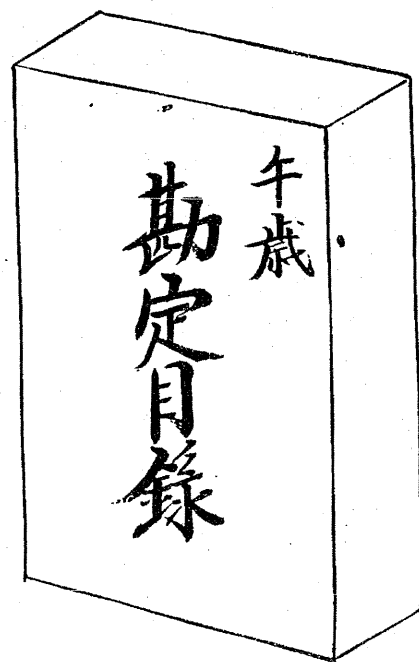 午歳
勘定目録